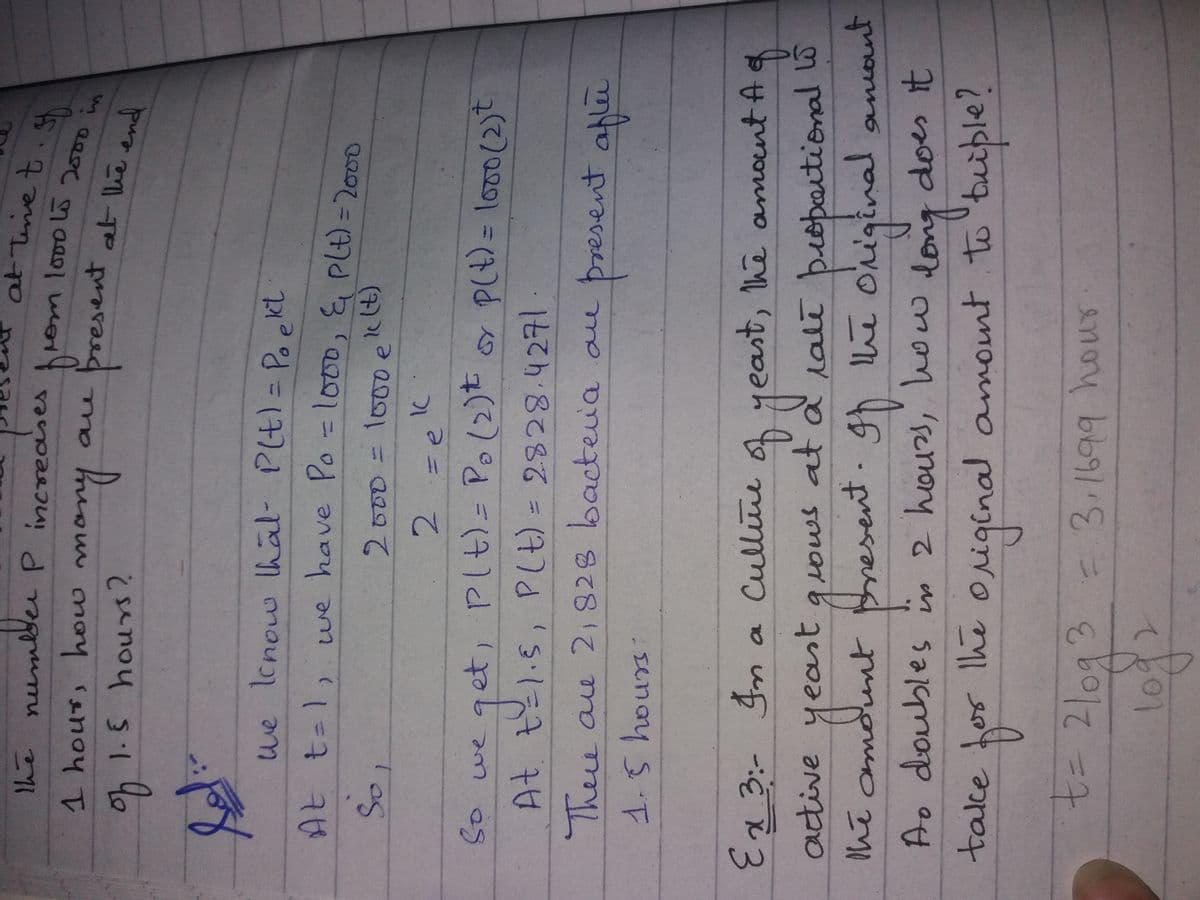 the number P increases from 1000 to 2000 in
1 hour, how many are present at the end
of 1.5 hours?
Sol:-
we know that P(t) = P₀e^kt
At t=1, we have P₀ = 1000, & P(t) = 2000
So, 2000 = 1000 e^k(t)
2 = e^k
So we get, P(t) = P₀(2)^t or P(t) = 1000(2)^t
At t=1.5, P(t) = 2828.4271.
There are 2,828 bacteria are present after
1.5 hours.
Ex 3:- In a culture of yeast, the amount A of
active yeast grows at a rate propertional to
the amount present. If the original amount
A₀ doubles in 2 hours, how long does it
take for the original amount to triple?
t = 2log3 / log2 = 3.1699 hour.